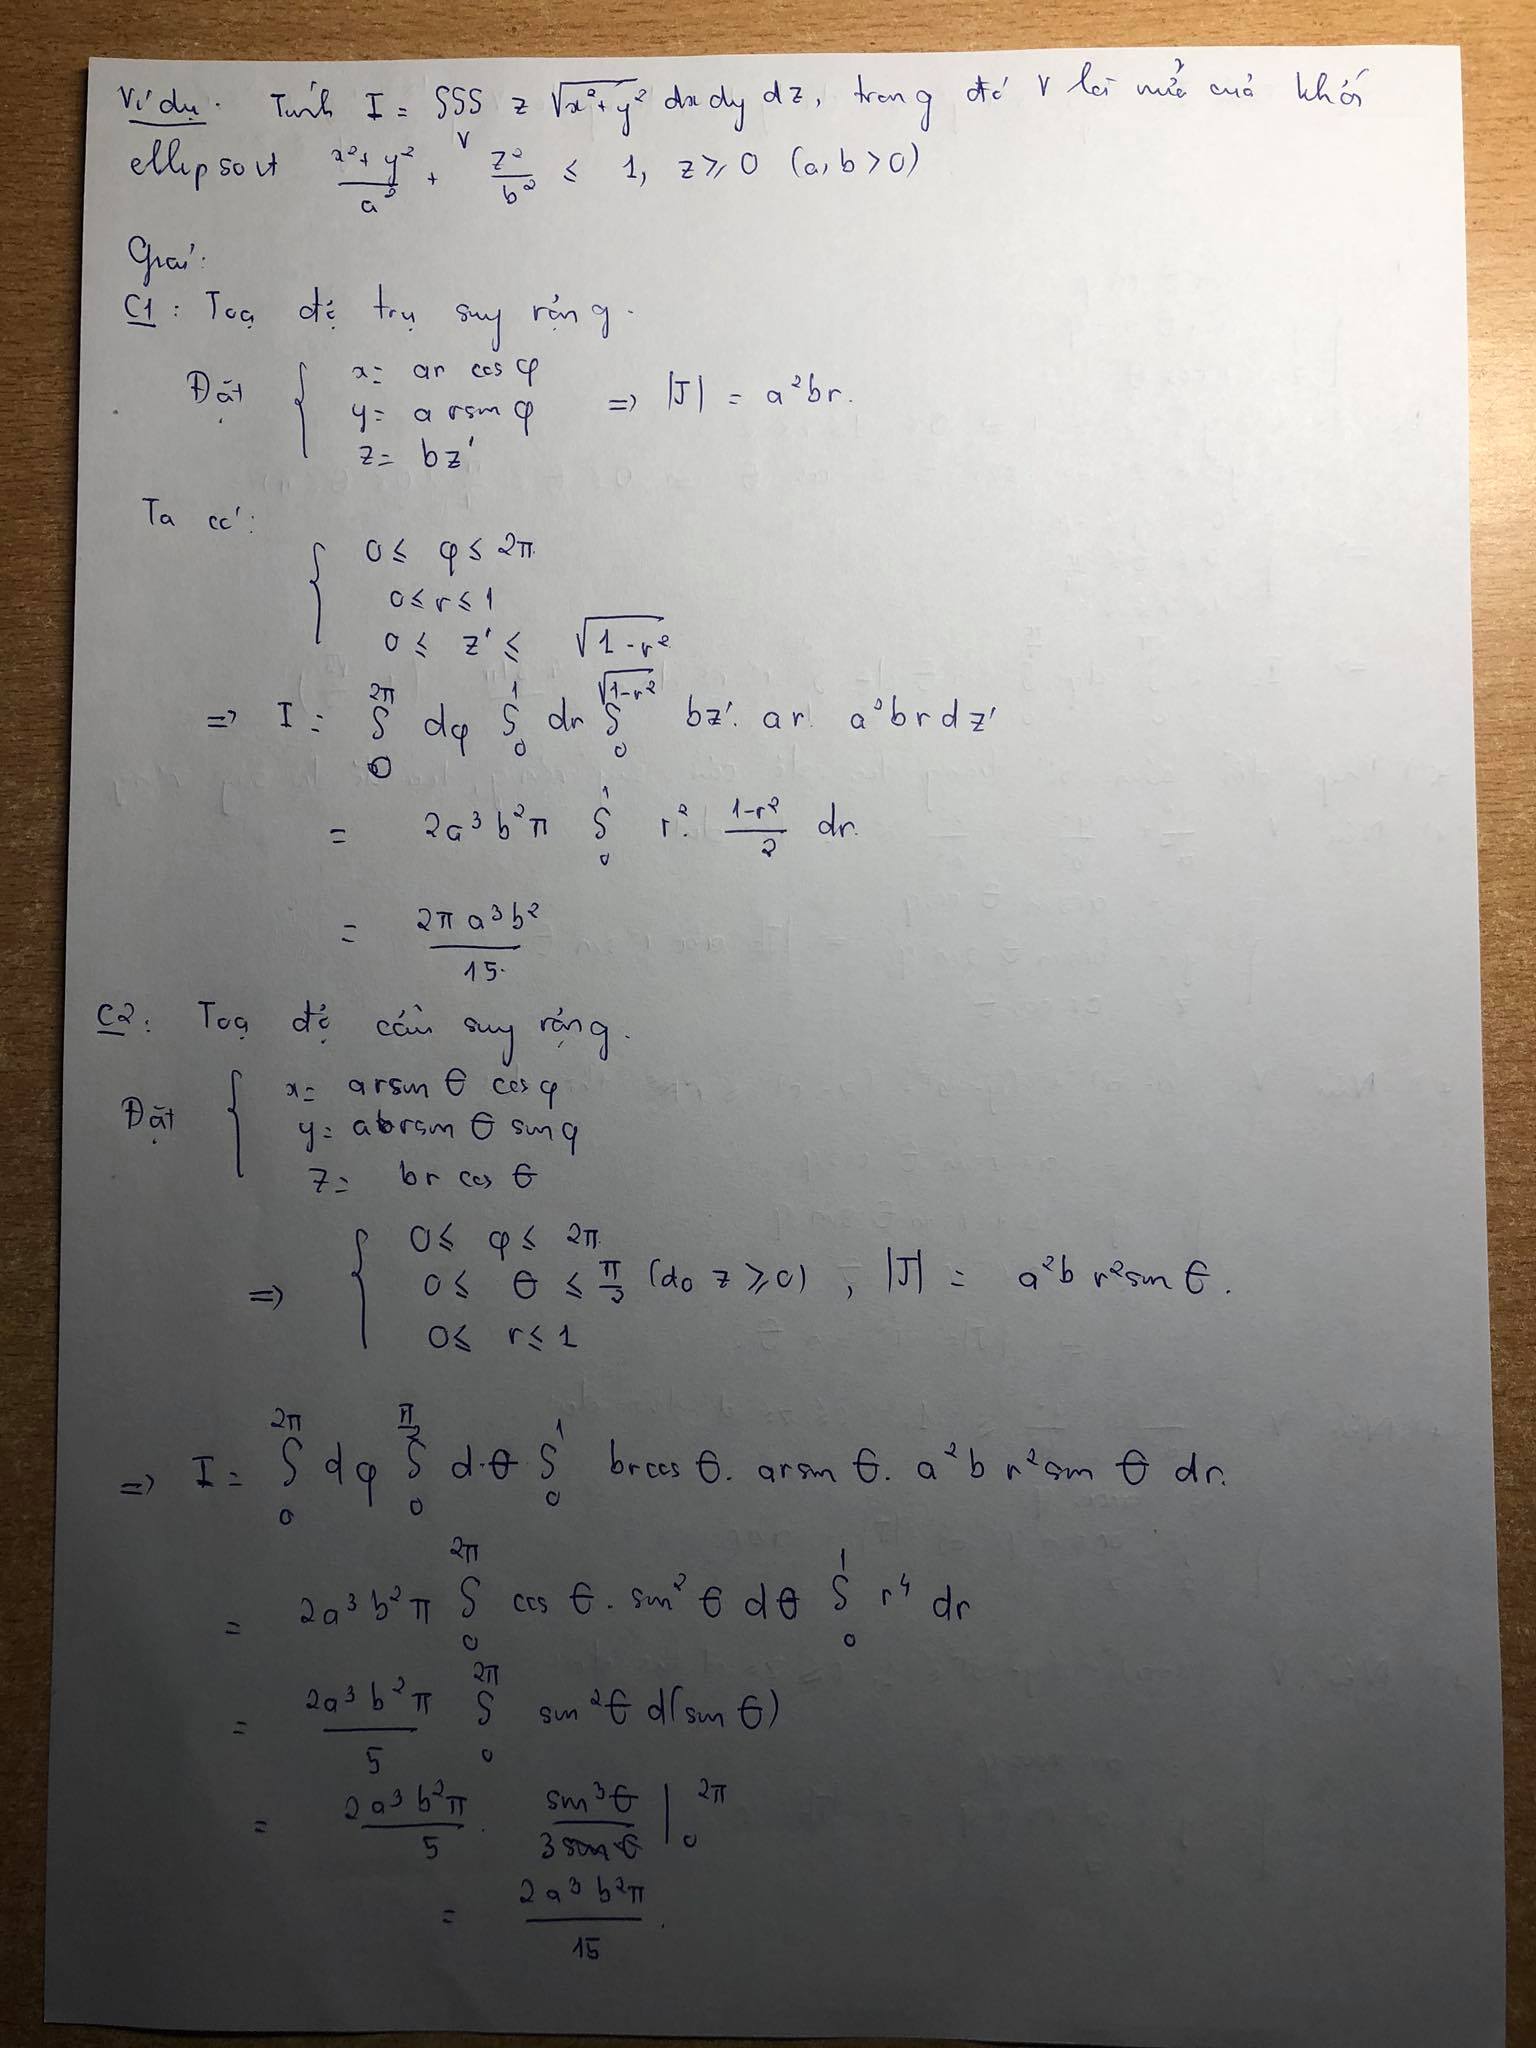 Ví dụ. Tính I = ∭_V z √(x²+y²) dx dy dz, trong đó V là nửa của khối
ellipsoit (x²+y²)/a² + z²/b² ≤ 1, z ≥ 0 (a, b > 0)
Giải:
C1: Toạ độ trụ suy rộng.
Đặt { x = ar cos φ
y = a r sin φ ⇒ |J| = a²br.
z = bz'
Ta có:
{ 0 ≤ φ ≤ 2π
0 ≤ r ≤ 1
0 ≤ z' ≤ √(1-r²)
⇒ I = ∫_0^{2π} dφ ∫_0^1 dr ∫_0^{√(1-r²)} bz'. ar. a²br dz'
= 2a³b²π ∫_0^1 r². (1-r²)/2 dr.
= 2πa³b²/15.
C2: Toạ độ cầu suy rộng.
Đặt { x = ar sin θ cos φ
y = abr sin θ sin φ
z = br cos θ
⇒ { 0 ≤ φ ≤ 2π
0 ≤ θ ≤ π/2 (do z ≥ 0), |J| = a²b r² sin θ.
0 ≤ r ≤ 1
⇒ I = ∫_0^{2π} dφ ∫_0^{π/2} dθ ∫_0^1 br cos θ. ar sin θ. a²b r² sin θ dr.
= 2a³b²π ∫_0^{2π} cos θ. sin²θ dθ ∫_0^1 r⁴ dr
= 2a³b²π/5 ∫_0^{2π} sin²θ d(sin θ)
= 2a³b²π/5 . sin³θ/3 |_0^{2π}
= 2a³b²π/15.